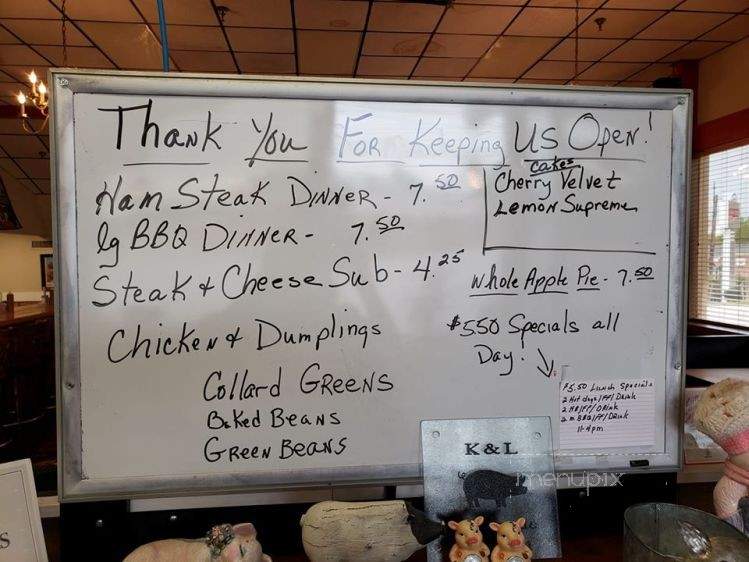 Thank You For Keeping Us Open!
Ham Steak Dinner - 7.50
lg BBQ Dinner - 7.50
Steak & Cheese Sub - 4.25
Chicken & Dumplings
Collard Greens
Baked Beans
Green Beans
Cakes
Cherry Velvet
Lemon Supreme
Whole Apple Pie - 7.50
$550 Specials all
Day.
$5.50 Lunch Specials
2 Hot dogs/FF/Drink
2 HB/FF/Drink
2 m BBQ/FF/Drink
11-4pm
K & L
menupix
S